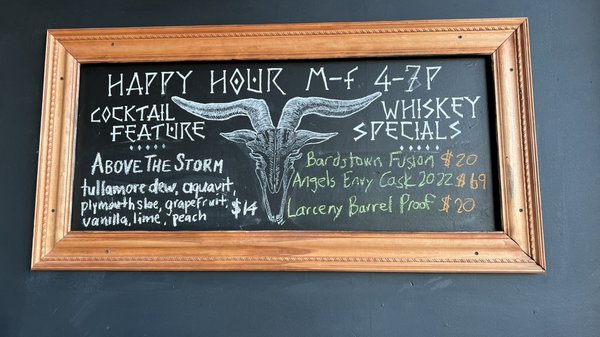 HAPPY HOUR M-F 4-7P
COCKTAIL
FEATURE
ABOVE THE STORM
tullamore dew, aquavit,
plymouth sloe, grapefruit,
vanilla, lime, peach $14
WHISKEY
SPECIALS
Bardstown Fusion $20
Angels Envy Cask 2022 $69
Larceny Barrel Proof $20